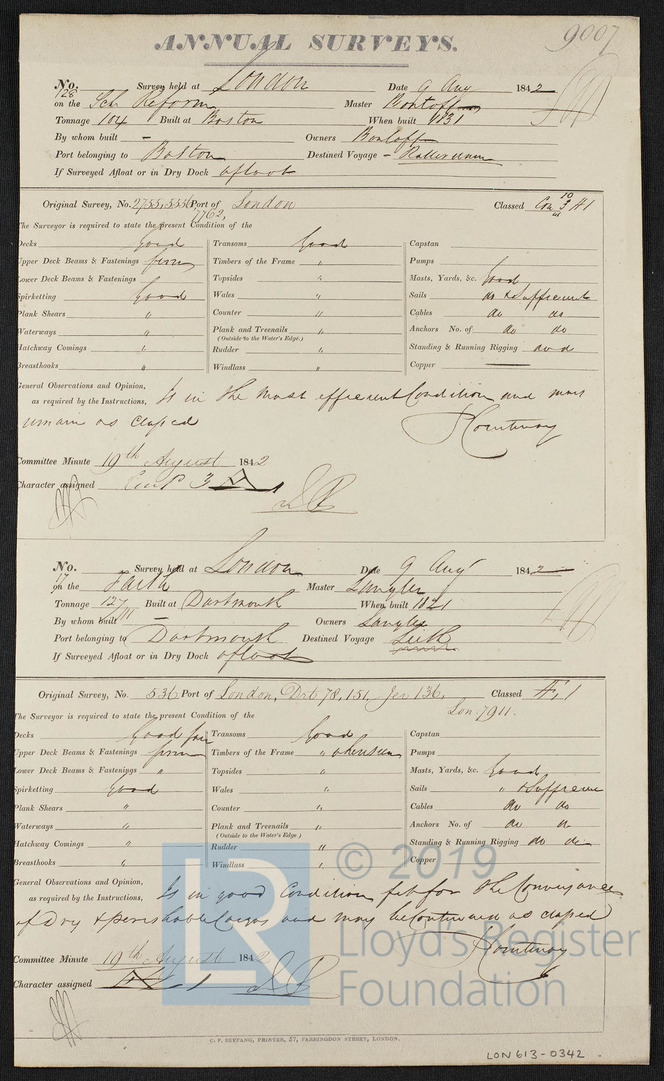 ANNUAL SURVEYS.
9007
No. 128 Survey held at London Date 9 Aug 1842
on the Sch Reform Master Bontoff
Tonnage 104 Built at Boston When built 1831
By whom built — Owners Bontoff
Port belonging to Boston Destined Voyage – Rotterdam
If Surveyed Afloat or in Dry Dock afloat
Original Survey, No. 2755, 5556 Port of London Classed Con 10 3 A1
7762,
The Surveyor is required to state the present Condition of the
Decks Good Transoms Good Capstan
Upper Deck Beams & Fastenings firm Timbers of the Frame " Pumps
Lower Deck Beams & Fastenings Topsides " Masts, Yards, &c. Good
Spirketting Good Wales " Sails do & Sufficient
Plank Shears " Counter " Cables do do
Waterways " Plank and Treenails " Anchors No. of do do
(Outside to the Water's Edge.)
Hatchway Comings " Rudder " Standing & Running Rigging do d
Breasthooks " Windlass " Copper —
General Observations and Opinion, Is in the most efficient Condition and may
as required by the Instructions,
remain as classed
J Courtenay
Committee Minute 19th August 1842
Character assigned Cont 3 A 1
No. 17 Survey held at London Date 9 Aug 1842
on the Faith Master Langley
Tonnage 127 Built at Dartmouth When built 1821
By whom built — Owners Langley
Port belonging to Dartmouth Destined Voyage Leith
If Surveyed Afloat or in Dry Dock afloat
Original Survey, No. 536 Port of London, Drt 78, 151, Jer 136, Classed Æ 1
Lon. 7911.
The Surveyor is required to state the present Condition of the
Decks Good fair Transoms Good Capstan
Upper Deck Beams & Fastenings firm Timbers of the Frame " where seen Pumps
Lower Deck Beams & Fastenings " Topsides " Masts, Yards, &c. Good
Spirketting Good Wales " Sails " & Sufficient
Plank Shears " Counter " Cables do do
Waterways " Plank and Treenails " Anchors No. of do do
(Outside to the Water's Edge.)
Hatchway Comings " Rudder " Standing & Running Rigging do do
Breasthooks " Windlass " Copper
General Observations and Opinion, Is in good Condition fit for the Conveyance
as required by the Instructions,
of Dry & perishable Cargos and may be Continued as classed
J Courtenay
Committee Minute 19th August 1842
Character assigned Æ 1
C. F. SEYFANG, PRINTER, 57, FARRINGDON STREET, LONDON.
LON613-0342
LR
© 2019
Lloyd's Register
Foundation